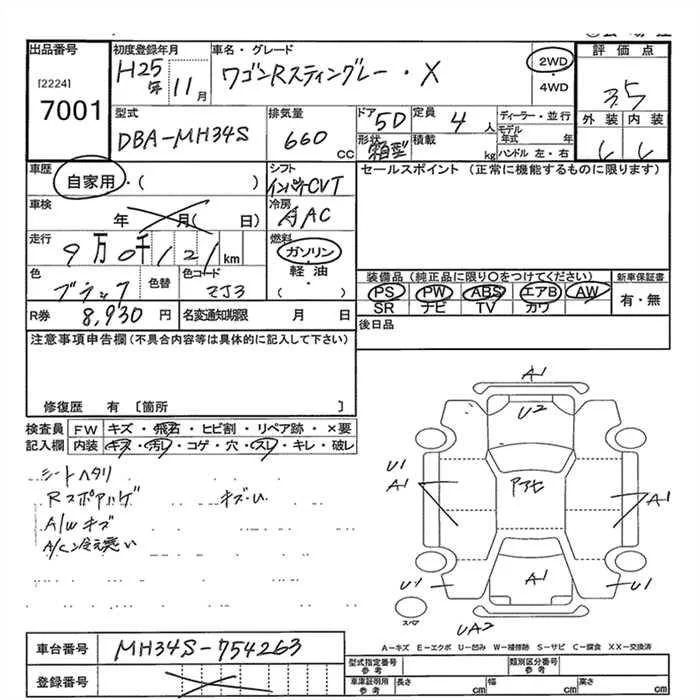 出品番号
[2224]
7001
初度登録年月
H25年 11月
車名・グレード
ワゴンRスティングレー・X
2WD
・
4WD
評価点
3.5
外装 内装
C C
型式
DBA-MH34S
排気量
660 CC
ドア 5D
形状 箱型
定員 4 人
積載 kg
ディーラー・並行
モデル年式 年
ハンドル 左・右
車歴
自家用・( )
シフト
インパネCVT
セールスポイント (正常に機能するものに限ります)
車検
年 月( 日)
冷房
AAC
走行
9万0千121km
燃料
ガソリン
軽油
(・)
色
ブラック
色替
色コード
ZJ3
装備品 (純正品に限り○をつけてください)
PS PW ABS エアB AW
SR ナビ TV カワ
新車保証書
有・無
R券 8,930 円
名変通知期限 月 日
後日品
注意事項申告欄(不具合内容等は具体的に記入して下さい)
修復歴 有 [箇所 ]
検査員記入欄
FW キズ・飛石・ヒビ割・リペア跡・×要
内装 キズ・汚レ・コゲ・穴・スレ・キレ・破レ
シートヘタリ
RスポアゲA キズ・U
A/Wキズ
A/C冷え悪い
A1
U2
U1
A1
アセ
A1
A1
U1
U1
UA2
スペア
A-キズ E-エクボ U-凹み W-補修跡 S-サビ C-腐食 XX-交換済
車台番号
MH34S-754263
登録番号
型式指定番号参考
類別区分番号参考
車庫証明用参考
長さ cm
幅 cm
高さ cm